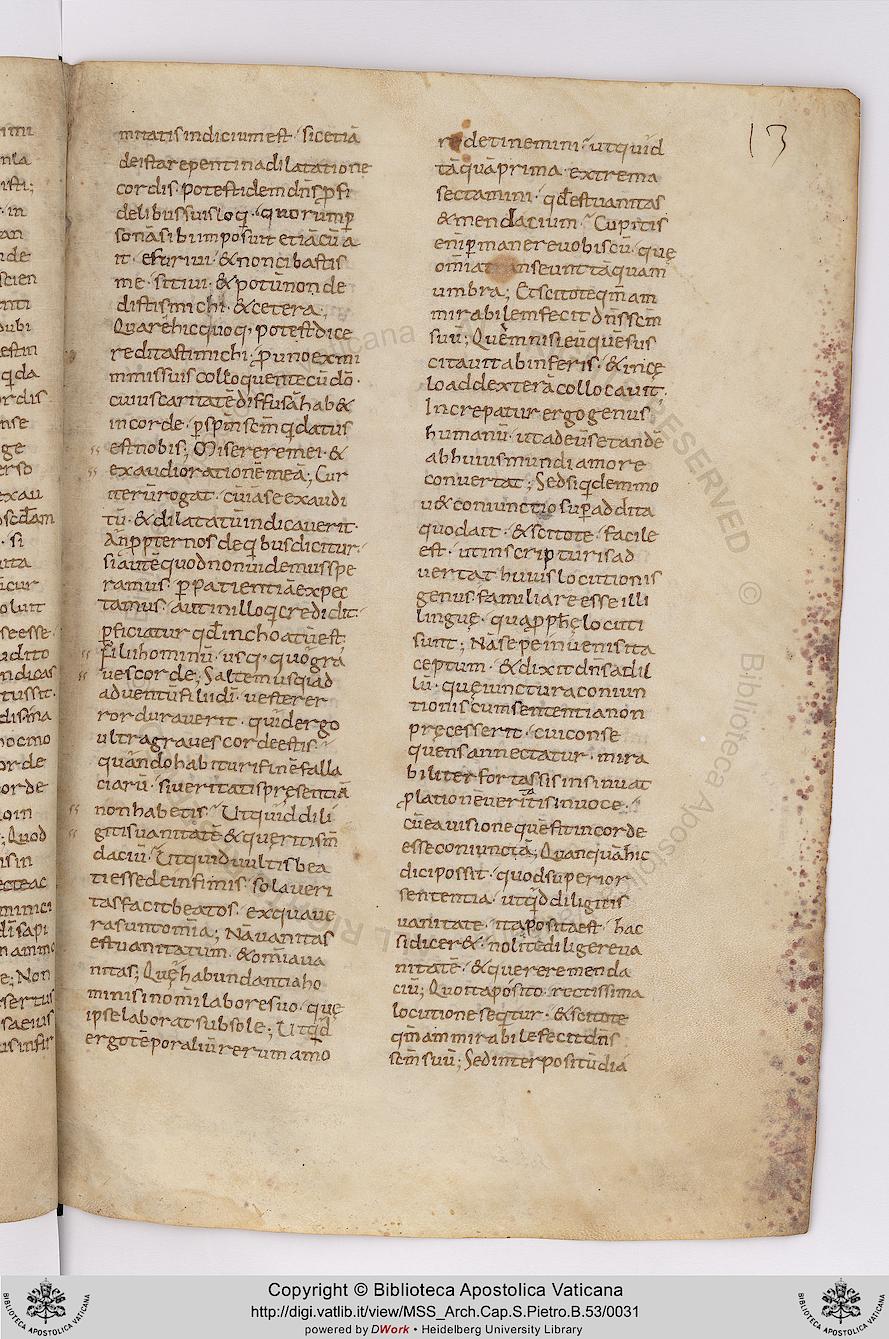 13
mitatis indicium est · sicetiā
deista repentina dilatatione
cordis · potest idem dn̄s ꝑ fi
delibus suis loq̄ · quorum ꝑ
sonā sibi imposuit etiā cū a
it · esurivi · & non cibastis
me · sitivi · & potū non de
distis michi · & cetera;
Quare hic quoq; potest dice
re dilatasti michi · ꝓ uno ex mi
nimis suis colloquente cū dō ·
cuius caritatē diffusā hab&
in corde · ꝑ spm̄ scm̄ q̄ datus
est nobis; Miserere mei · &
exaudi orationē meā; Cur
iterū rogat · cū iā se exaudi
tū · & dilatatū indicaverit ·
An ꝓpter nos de qibus dicitur ·
si autē quod non videmus spe
ramus · ꝑ patientiā expec
tamus · aut in illo q̄ credidit ·
ꝑficiatur qđ inchoatū est ·
Filii hominū · usq; quo gra
ves corde; Saltem usq; ad
adventū filii dī · vester er
ror duraverit · quid ergo
ultra graves corde estis ·
quando habituri finē falla
ciarū · si veritatis p̄sentiā
non habetis · Ut quid dili
gitis vanitatē & queritis m̄
daciū · Ut quid vultis bea
ti esse de infimis · sola veri
tas facit beatos · ex qua ve
ra sunt om̄ia; Nā vanitas
est vanitatum · & om̄ia va
nitas; Quę habundantia ho
minis in om̄i labore suo · quę
ipse laborat sub sole; Ut qđ
ergo tēporaliū rerum amo
re detinemini · ut quid
tāquā prima · extrema
sectamini · qđ est vanitas
& mendacium · Cupitis
enī ꝑmanere vobiscū · quę
om̄ia transeunt tāquam
umbra; Et scitote qm̄ am
mirabilem fecit dn̄s scm̄
suū; Quē nisi eū quē sus
citavit ab inferis · & in cę
lo ad dexterā collocavit ·
Increpatur ergo genus
humanū · ut ad eū se tandē
ab huius mundi amore
convertat; Sed si qdem mo
v& coniunctio supaddita
quod ait · & scitote · facile
est · ut in scripturis ad
vertat huius locutionis
genus familiare esse illi
linguę · qua ꝓph̄ę locuti
sunt; Nā sepe invenis ita
ceptum · & dixit dn̄s ad il
lū · quę iunctura coniun
tionis cum sententia non
precesserit · cui conse
quens annectatur · mira
biliter fortassis insinuat
ꝓlationē veritatis in voce ·
cū ea visione quę fit in corde
esse coniunctā; Quanquā hic
dici possit · quod superior
sententia · ut qđ diligitis
vanitate · ita posita est · hac
si dicer& · nolite diligere va
nitatē · & querere menda
ciū; Quo ita posito · rectissima
locutione seqtur · & scitote
qm̄ am mirabile fecit dn̄s
scm̄ suū; Sed interpositū dia
Copyright © Biblioteca Apostolica Vaticana
http://digi.vatlib.it/view/MSS_Arch.Cap.S.Pietro.B.53/0031
powered by DWork • Heidelberg University Library
BIBLIOTECA APOSTOLICA VATICANA
BIBLIOTECA APOSTOLICA VATICANA